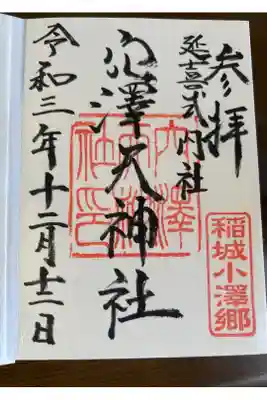 参拝
稲城小澤郷
延喜式内社
穴澤天神社
穴澤
天神
社印
令和三年十二月十二日